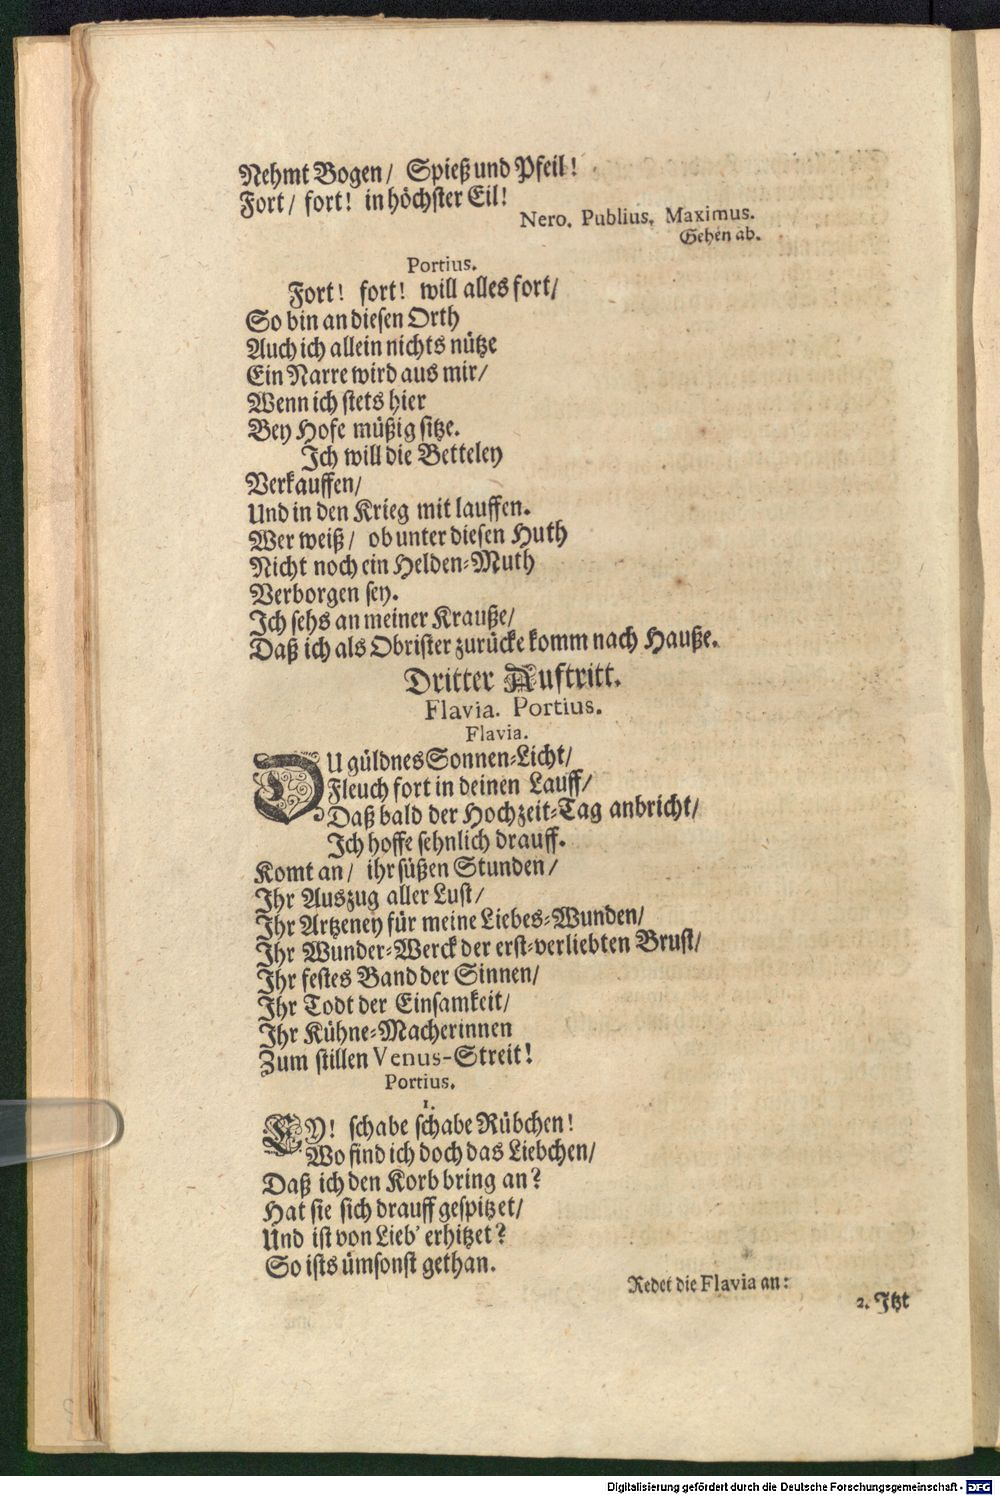 Nehmt Bogen/ Spieß und Pfeil!
Fort/ fort! in höchster Eil!
Nero. Publius. Maximus.
Gehen ab.
Portius.
Fort! fort! will alles fort/
So bin an diesen Orth
Auch ich allein nichts nütze
Ein Narre wird aus mir/
Wenn ich stets hier
Bey Hofe müßig sitze.
Ich will die Betteley
Verkauffen/
Und in den Krieg mit lauffen.
Wer weiß/ ob unter diesen Huth
Nicht noch ein Helden-Muth
Verborgen sey.
Ich sehs an meiner Krauße/
Daß ich als Obrister zurücke komm nach Hauße.
Dritter Auftritt.
Flavia. Portius.
Flavia.
DU güldnes Sonnen-Licht/
Fleuch fort in deinen Lauff/
Daß bald der Hochzeit-Tag anbricht/
Ich hoffe sehnlich drauff.
Komt an/ ihr süßen Stunden/
Ihr Auszug aller Lust/
Ihr Artzeney für meine Liebes-Wunden/
Ihr Wunder-Werck der erst-verliebten Brust/
Ihr festes Band der Sinnen/
Ihr Todt der Einsamkeit/
Ihr Kühne-Macherinnen
Zum stillen Venus-Streit!
Portius.
1.
EY! schabe schabe Rübchen!
Wo find ich doch das Liebchen/
Daß ich den Korb bring an?
Hat sie sich drauff gespitzet/
Und ist von Lieb' erhitzet?
So ists ümsonst gethan.
Redet die Flavia an:
2. Itzt
Digitalisierung gefördert durch die Deutsche Forschungsgemeinschaft - DFG